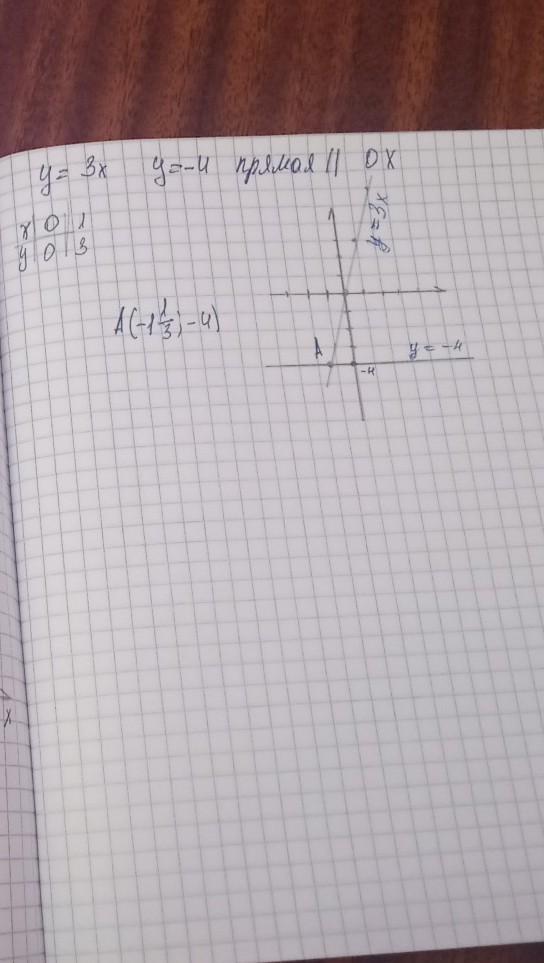 y = 3x y = -4 прямая || OX
x 0 1
y 0 3
y = 3x
A(-1 1/3; -4)
A
y = -4
-4
x